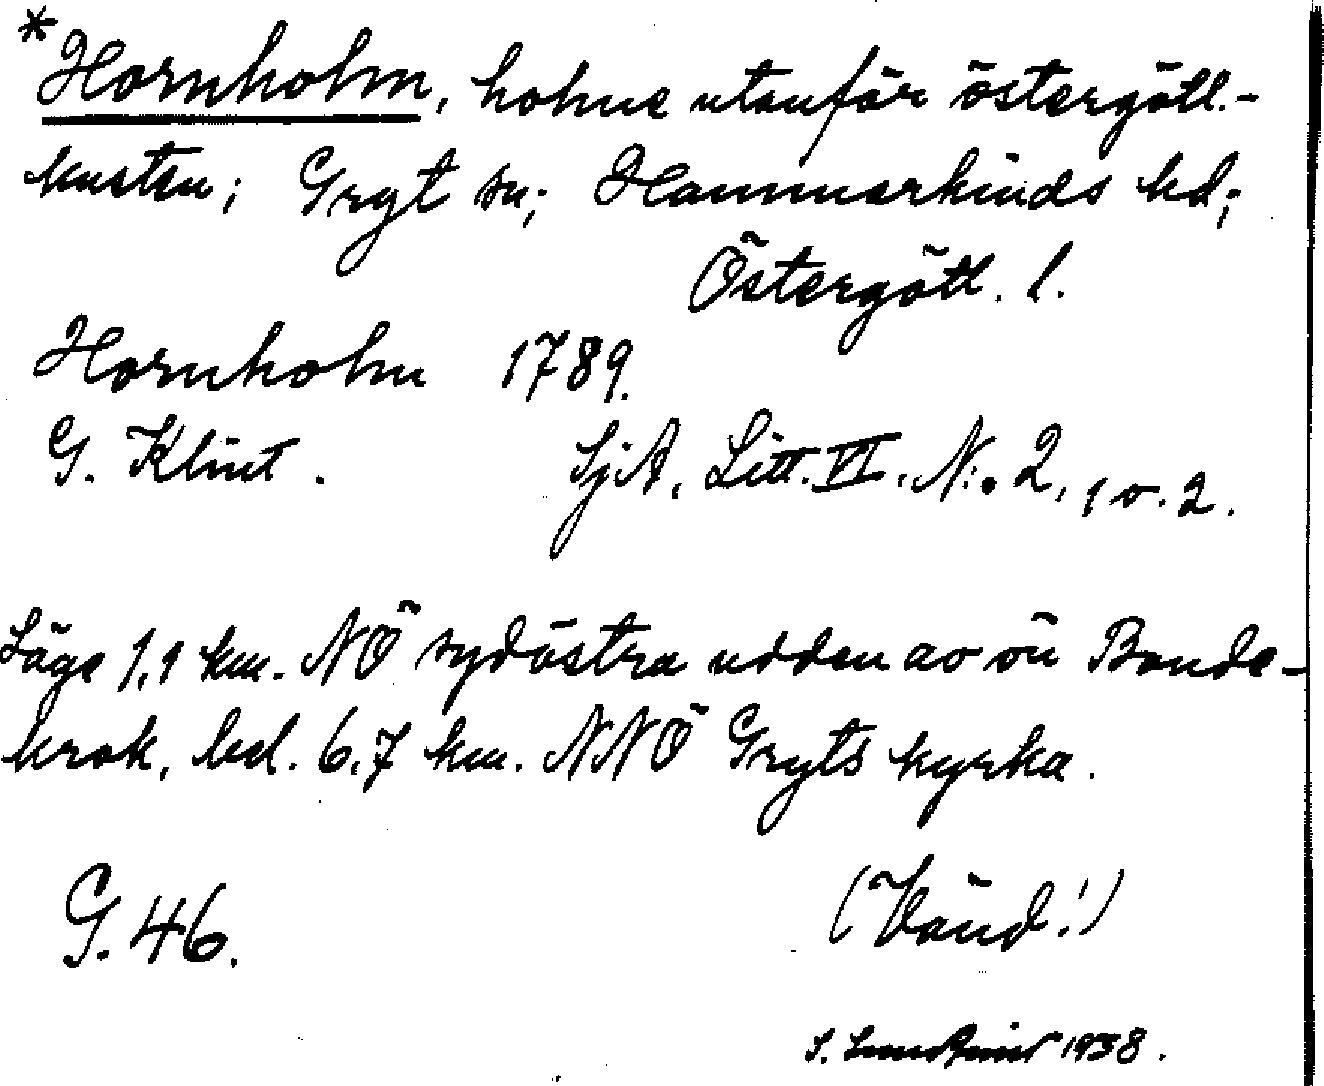 *Hornholm, holme utanför östergötl.-
kusten; Gryt sn; Hammarkinds hd;
Östergötl. l.
Hornholm 1789.
G. Klint. SjA, Litt. VI. N:o 2, 1 o. 2.
Läge 1,1 km. NÖ sydöstra udden av ön Bonde-
krok, bel. 6,7 km. NNÖ Gryts kyrka.
G. 46. (Vänd!)
S. 1938.